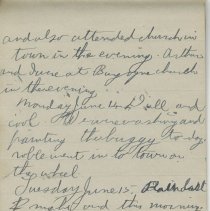 and also attended church in
town in the evening. Arthur
and June at Burgoyne church
in the evening
Monday June 14 Dull and
cool. We are washing and
painting the buggy today.
Roble went in to town on
the wheel
Tuesday June 15,
R and this morning